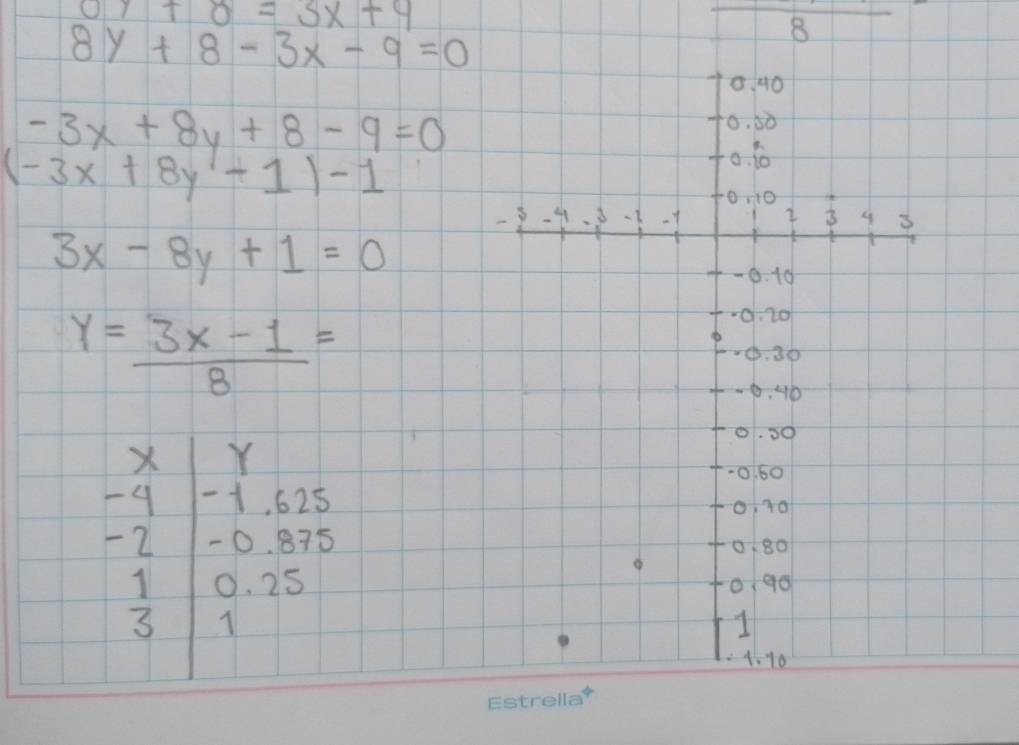 8y + 8 = 3x + 9
8y + 8 - 3x - 9 = 0
-3x + 8y + 8 - 9 = 0
(-3x + 8y + 1) - 1
3x - 8y + 1 = 0
Y = 3x - 1 =
8
X Y
-4 -1.625
-2 -0.875
1 0.25
3 1
8
0.40
0.30
0.10
-5 -4 -3 -2 -1 1 2 3 4 5
-0.10
-0.20
-0.30
-0.40
0.50
-0.60
0.70
0.80
0.90
1
1.10
Estrella